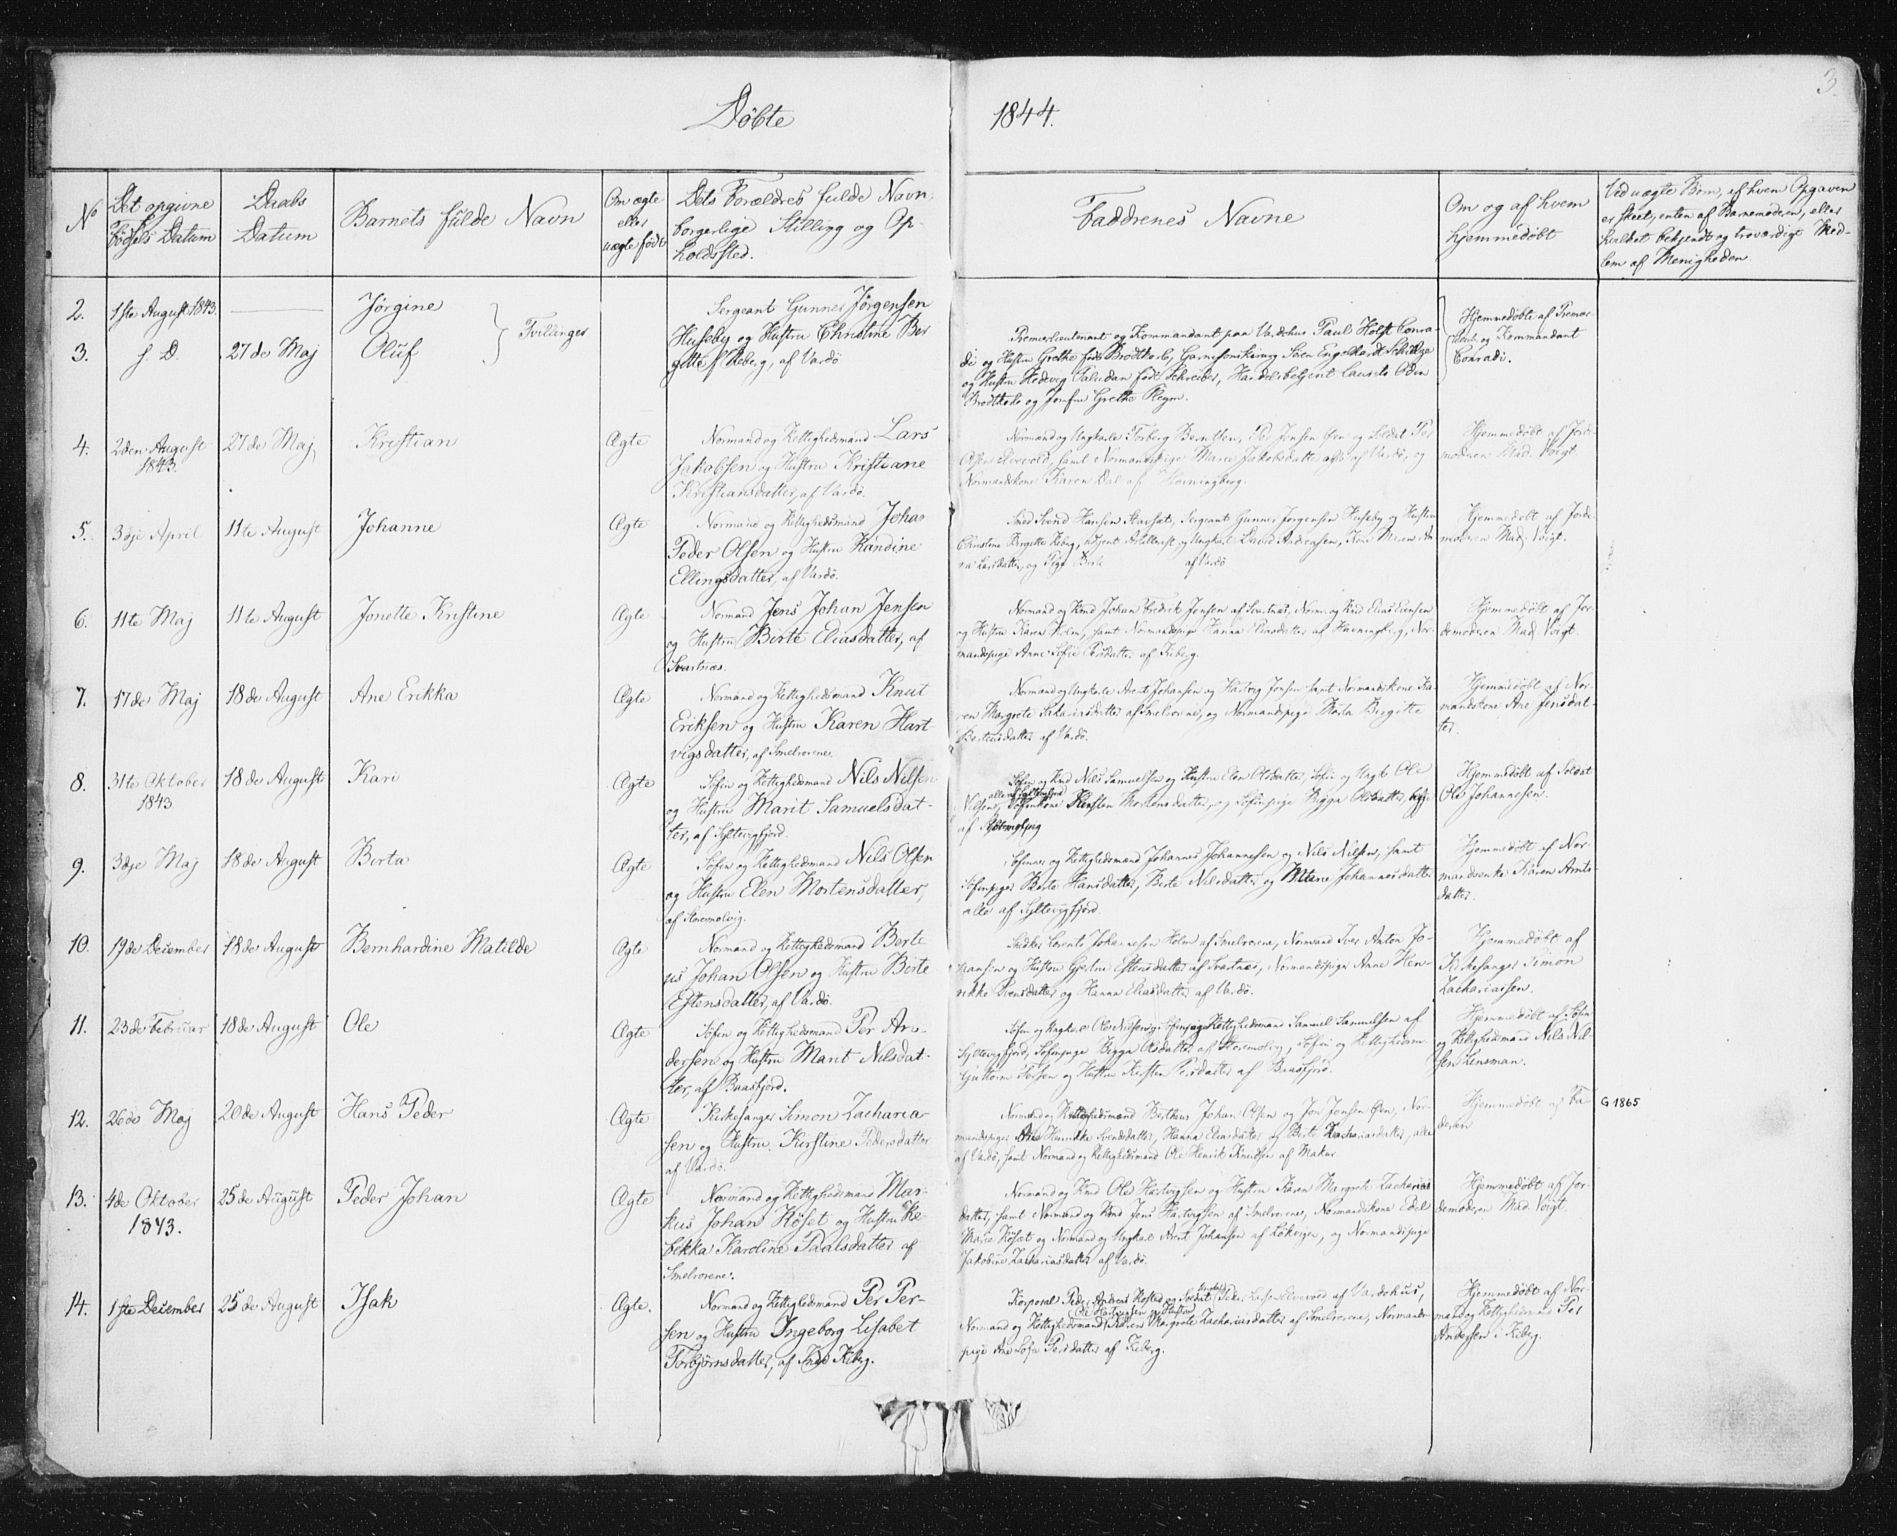 Døbte
1844.
3.
No
Det opgivne
Fødsels Datum
Daabs
Datum
Barnets fulde Navn
Om ægte
eller
uægte født
Dets Forældres fulde Navn,
borgerlige Stilling og Op-
holdssted.
Faddrenes Navne
Om og af hvem
hjemmedøbt
Ved uægte Børn, af hvem Opgaven
er skeet, enten af Barnemoderen, eller
hvilket bekjendt og troværdigt Med-
lem af Menigheden.
2.
1ste August 1843.
Jørgine
Tvillinger
3.
s. D.
27de Maj
Oluf
Sergeant Gunner Jørgensen
Huseby og Hustru Christine Bir
gitte Keberg, af Vardö
Premierlieutenant og Kommandant paa Vardøhus Paul Holst Conra-
di og Hustru Grethe født Brodtkorb,
og Hustru Hedevig Paludan født Schreiber,
Brodtkorb og Jomfru Grethe
Hjemmedøbte af Premier-
og Kommandant
Conradi.
4.
2den August
1843.
27de Maj
Kristian
Ægte
Normand og Rettighedsmand Lars
Jakobsen og Hustru Kristiane
Kristiansdatter, af Vardö.
Normand og Ungkarl Torberg Berntsen, Per Jensen Øen og Soldat Per
Olsen samt Normandspige Maren Jakobsdatter alle af Vardö, og
Normandskone Karen Dal af Havningberg.
Hjemmedøbt af Jorde-
moderen Mad. Voigt.
5.
3dje April
11te August
Johanne
Ægte
Normand og Rettighedsmand Johan
Peder Olsen og Hustru Randine
Ellingsdatter, af Vardö.
Smed Svend Hansen Sergeant Gunner Jørgensen Huseby og Hustru
Christine Birgitte Keberg, og Ungkarl David Andreasen, Kone Maren An-
na Larsdatter, og Pige Berte af Vardö
Hjemmedøbt af Jorde-
moderen Mad. Voigt.
6.
11te Maj
11te August
Jonette Kristine
Ægte
Normand Jens Johan Jensen
og Hustru Birte Eliasdatter, af
Svartnæs.
Normand og Rmd Johan Fredrik Jensen af Svartnæs, Norm. og Rmd Elias
og Hustru Karen Holm, samt Normandspige Hanna af Havningberg, Nor-
mandspige Ane Sofie Persdatter af Kiberg.
Hjemmedøbt af Jor-
demoderen Mad. Voigt.
7.
17de Maj
18de August
Ane Erikka
Ægte
Normand og Rettighedsmand Knut
Eriksen og Hustru Karen Hart-
vigsdatter, af Smelrorene.
Normand og Ungkarl Arnt Johansen og Hartvig Jensen samt Normandskone Ka-
ren Margrete Zakariasdatter af Smelrorene, og Normandspige Marta Birgitte
Berteusdatter af Vardö.
Hjemmedøbt af Nor-
mandskone Ane Jensdat-
ter.
8.
31te Oktober
1843
18de August
Kari
Ægte
Søfin og Rettighedsmand Nils Nilsen
og Hustru Marit Samuelsdat-
ter, af Syltevigfjord.
Søfin og Rmd Nils Samuelsen og Hustru Elen Olsdatter, Søfin og Ungk. Ole
Nilsen, Søfinkone Kirsten Mortensdatter, og Søfinpige Bigga Olsdatter,
Hjemmedøbt af Soldat
Ole Johannesen.
9.
3dje Maj
18de August
Berta
Ægte
Søfin og Rettighedsmand Nils Olsen
og Hustru Elen Mortensdatter,
af Storemolvig.
Søfinner og Rettighedsmænd Johannes Johannesen og Nils Nilsen, samt
Søfinpiger Berte Hansdatter, Berte Nilsdatter og Marie Johannesdatter
alle af Syltevigfjord.
Hjemmedøbt af Nor-
mandsenke Karen Arnts-
datter.
10.
19de December
18de August
Bernhardine Matilde
Ægte
Normand og Rettighedsmand Berte
us Johan Olsen og Hustru Birte
Estensdatter, af Vardö.
Snidker Lorents Johannesen Holm af Smelrorene, Normand Iver Anton Jo-
hansen og Hustru Gjertru Estensdatter af Svartnæs, Normandspiger Anne Hen-
rikke Svensdatter og Hanna Eliasdatter af Vardö.
Hjemmedøbt af
Kirkesanger Simon
Zachariassen.
11.
23de Februar
18de August
Ole
Ægte
Søfin og Rettighedsmand Per An-
dersen og Hustru Marit Nilsdat-
ter, af Baasfjord.
Søfin og Ungkarl Ole Nilsen, Rettighedsmand Samuel Samuelsen af
Syltevigfjord, Søfinpige Bigga Olsdatter af Storemolvig, Søfin og Rettighedsm.
Guttorm og Hustru Kirsten Persdatter af Baasfjord.
Hjemmedøbt af Søfin
og Rettighedsmand Nils Nil-
sen Lensman.
12.
26de Maj
20de August
Hans Peder
Ægte
Kirkesanger Simon Zacharia-
sen og Hustru Kirstine Pedersdatter
af Vardö.
Normand og Rettighedsmænd Bertheus Johan Olsen og Jon Jensen Øen, Nor-
mandspiger Ane Henrikke Svendsdatter, Hanna Eliasdatter og Berte Zachariasdatter, alle
af Vardö, samt Normand og Rettighedsmand Ole Henrik Knudsen af Makur
Hjemmedøbt af Fa-
deren
G 1865
13.
4de Oktober
1843.
25de August
Peder Johan
Ægte
Normand og Rettighedsmand Mar-
kus Johan Köset og Hustru Re-
bekka Karoline Paalsdatter af
Smelrorene.
Normand og Rmd Ole Hartvigsen og Hustru Karen Margrete Zacharias
datter, samt Normand og Rmd Jens Hartvigsen af Smelrorene, Normandskone Edel
Marie Köset og Normand og Ungkarl Arnt Johansen af og Normandspige
Jakobine Zachariasdatter af Vardö.
Hjemmedøbt af Jor-
demoderen Mad Voigt.
14.
1ste December
25de August
Isak
Ægte.
Normand og Rettighedsmand Per Per-
sen og Hustru Ingeborg Lisabet
Torbjørnsdatter, af Kiberg.
Korporal Peder Andreas Hofsted og Soldat Peder af Vardøhus,
Ole Hartvigsen og Hustru
Normand og Rettighedsmand Karen Margrete Zachariasdatter af Smelrorene, Normands-
pige Ane Sofie Persdatter af Kiberg.
Hjemmedøbt af Nor-
mand og Rettighedsmand Per
Andersen i Kiberg.